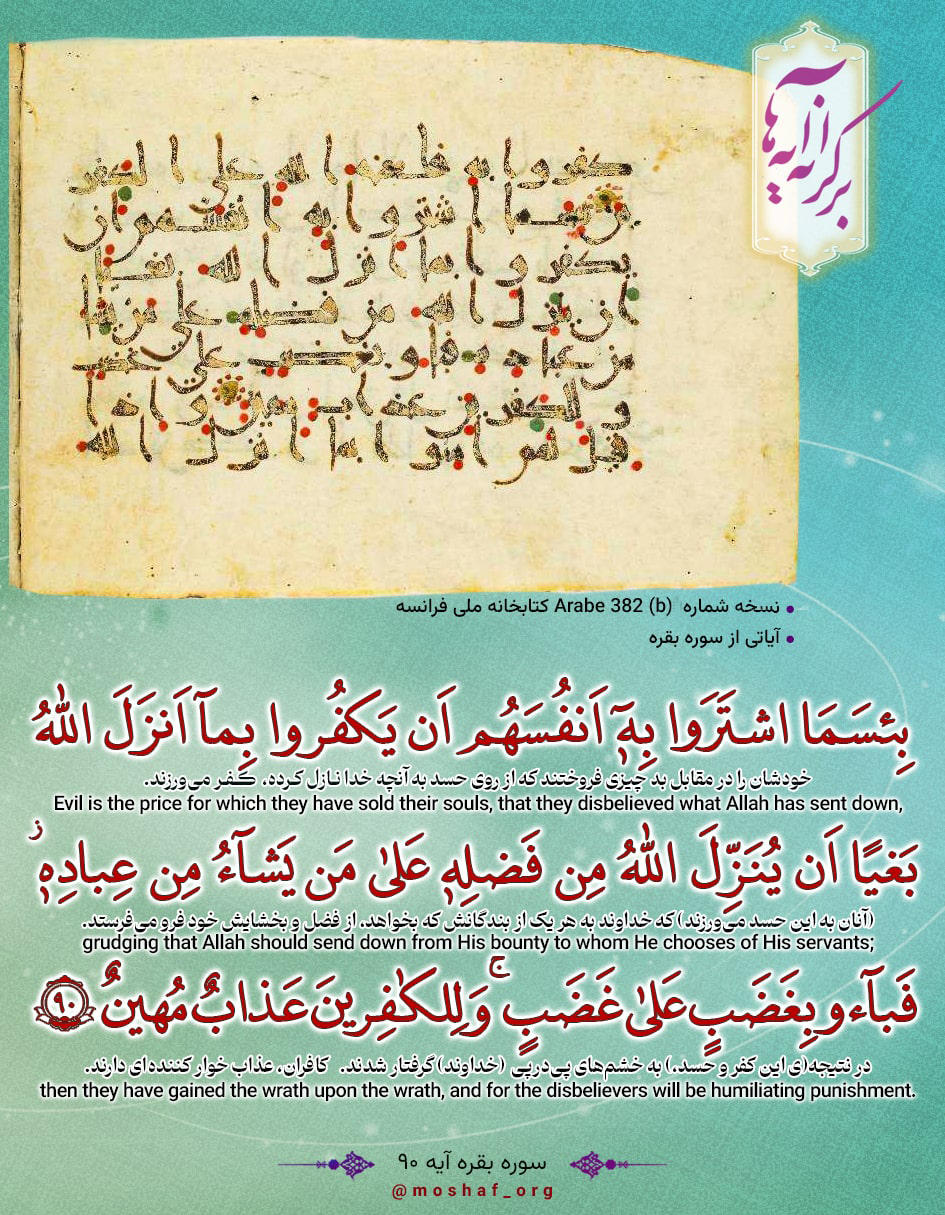 كفروا به فلعنه الله على الكفر
ين بئسما اشتروا به انفسهم ان
يكفروا بما انزل الله بغيا
ان ينزل الله من فضله على من يشا
من عباده فباو بغضب على غضب
وللكفرين عذاب مهين واذا
قيل لهم امنوا بما انزل الله
• نسخه شماره Arabe 382 (b) کتابخانه ملی فرانسه
• آیاتی از سوره بقره
بِئسَمَا اشتَرَوا بِهٖٓ اَنفُسَهُم اَن يَكفُروا بِمآ اَنزَلَ اللهُ
خودشان را در مقابل بد چیزی فروختند که از روی حسد به آنچه خدا نازل کرده، کفر می‌ورزند.
Evil is the price for which they have sold their souls, that they disbelieved what Allah has sent down,
بَغيًا اَن يُنَزِّلَ اللهُ مِن فَضلِهٖ عَلىٰ مَن يَشآءُ مِن عِبادِهٖ ز
(آنان به این حسد می‌ورزند) که خداوند به هر یک از بندگانش که بخواهد، از فضل و بخشایش خود فرو می‌فرستد.
grudging that Allah should send down from His bounty to whom He chooses of His servants;
فَبآءو بِغَضَبٍ عَلىٰ غَضَبٍ ج وَلِلكٰفِرينَ عَذابٌ مُهينٌ ۹۰
در نتیجه(ی این کفر و حسد،) به خشم‌های پی‌درپی (خداوند) گرفتار شدند. کافران، عذاب خوار کننده‌ای دارند.
then they have gained the wrath upon the wrath, and for the disbelievers will be humiliating punishment.
سوره بقره آیه ۹۰
@moshaf_org